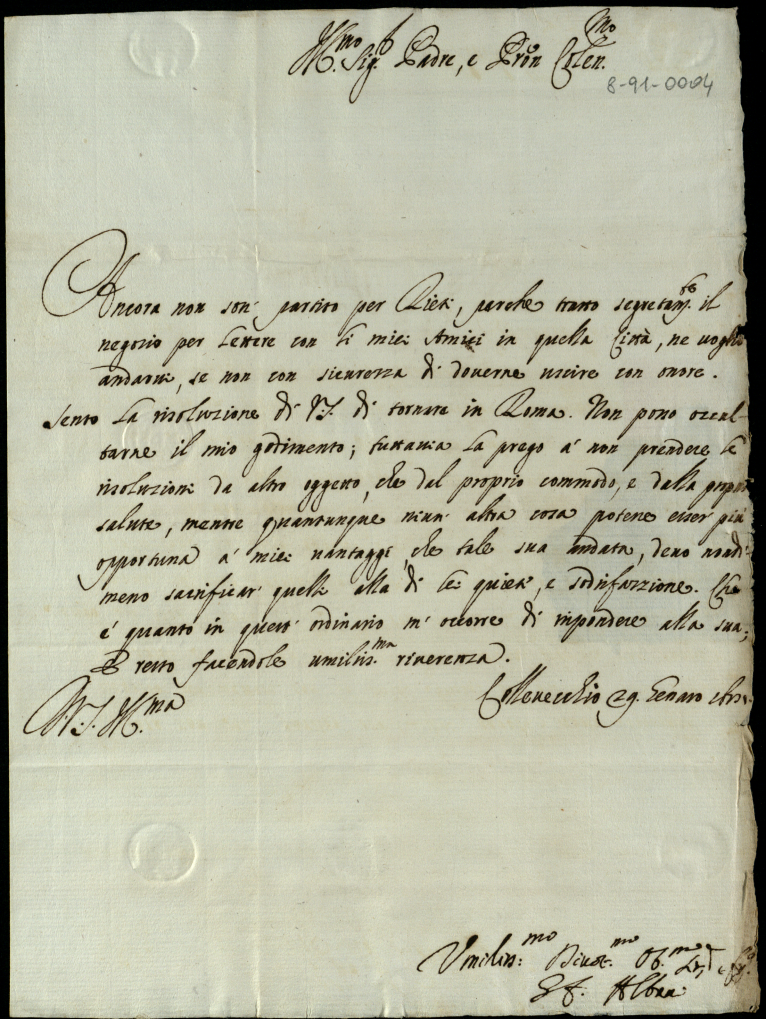 Ill.mo Sig.r Padre, e Pron Colen.mo
8-91-0004
Ancora non son' partito per Rieti, perche tratto segretam.te il
negozio per lettere con li miei Amici in quella Città, ne voglio
andarvi, se non con sicurezza di doverne uscire con onore.
Sento la risoluzione di V.S. di tornare in Roma. Non posso occul-
tarne il mio godimento; tuttavia la prego a' non prendere le
risoluzioni da altro oggetto, che dal proprio commodo, e dalla propria
salute, mentre quantunque niun' altra cosa potesse esser più
opportuna a' miei vantaggi, che tale sua andata, devo nondi-
meno sacrificar' quelli alla di lei quiete, e sodisfazzione. Che
è quanto in quest' ordinario m' occorre di rispondere alla sua,
E resto facendole umiliss.ma riverenza.
V.S. Ill.ma
Collevecchio 29. Genaro
Umiliss.mo Devot.mo Ob.mo
Albani